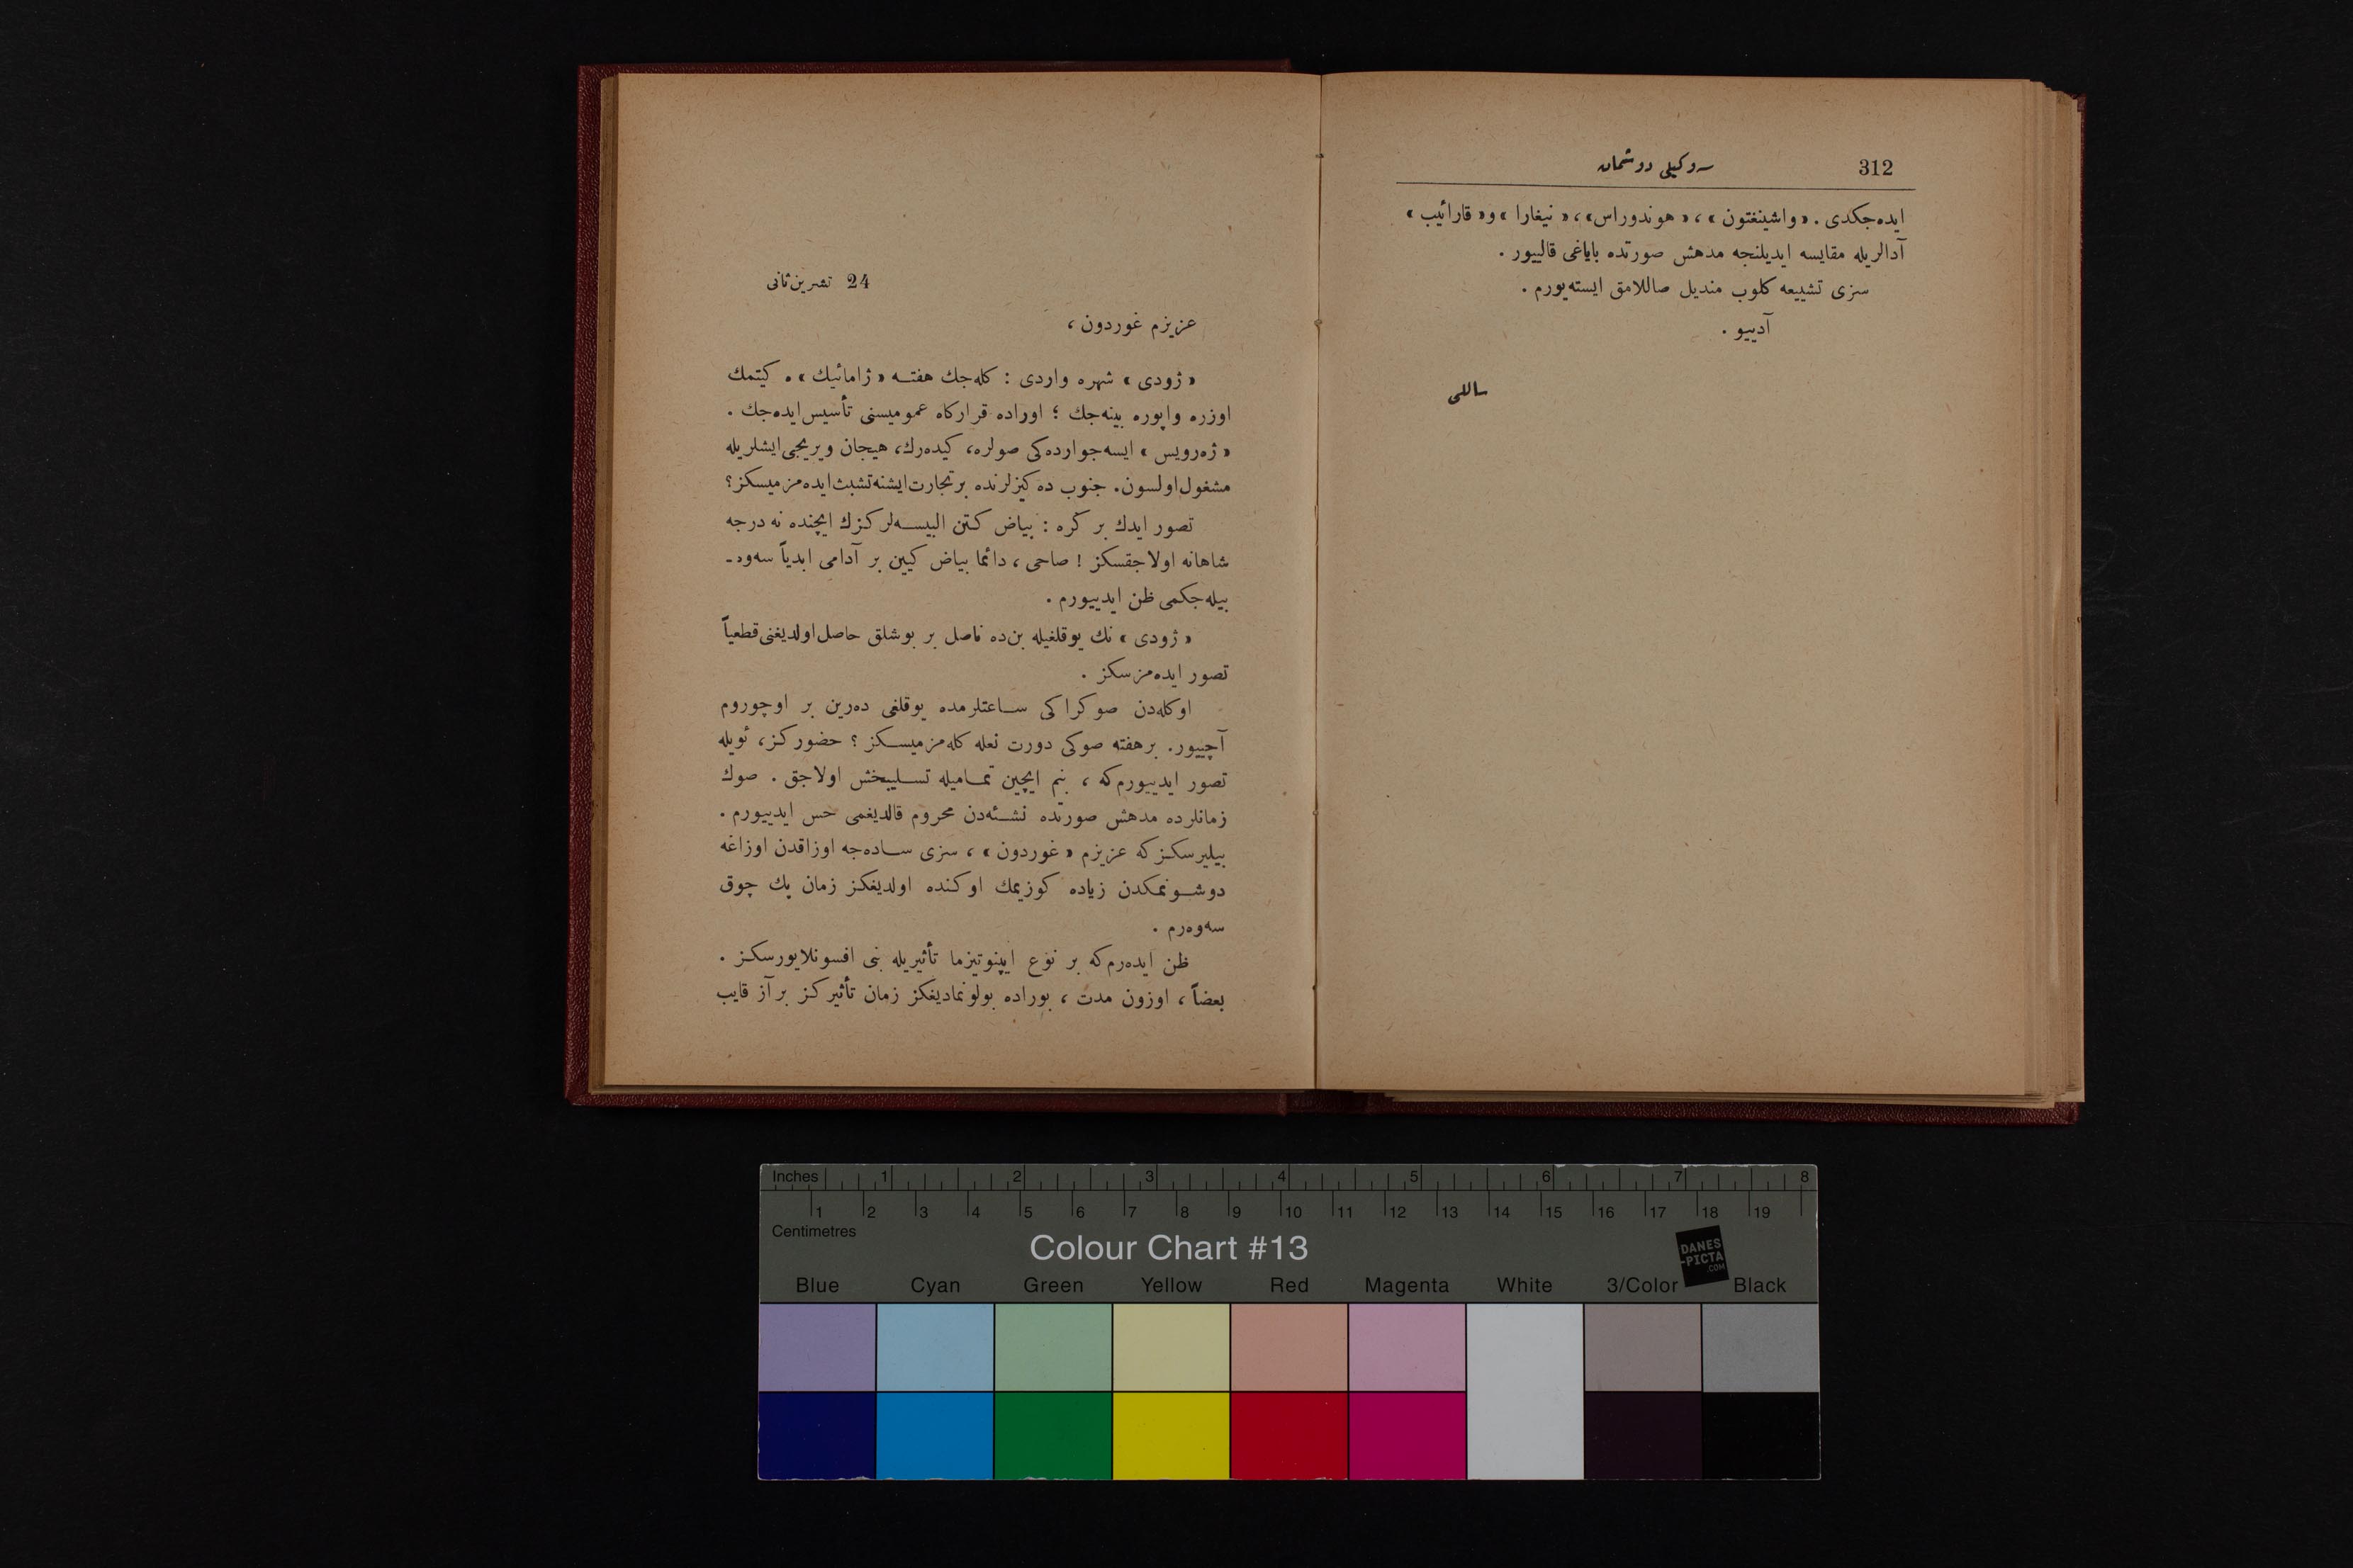 312
سوكیلی دوشمان
ایده‌جكدی . « واشینغتون » ، « هوندوراس» ، « نیغارا » و « قارائیب »
آدالریله مقایسه ایدیلنجه مدهش صورتده بایاغی قالییور .
سزی تشییعه كلوب مندیل صاللامق ایسته‌یورم .
آدییو .
ساللی
24 تشرین ثانی
عزیزم غوردون ،
« ژودی » شهره واردی : كله‌جك هفتـه « ژامائیك » ه كیتمك
اوزره واپوره بینه‌جك ؛ اوراده قراركاه عمومیسنی تأسیس ایده‌جك .
« ژه‌رویس » ایسه جوارده‌كی صولره ، كیده‌رك ، هیجان ویریجی ایشلریله
مشغول اولسون . جنوب ده كیزلرنده بر تجارت ایشنه تشبث ایده‌مز میسكز ؟
تصور ایدك بر كره : بیاض كتن البیسـه‌لركزك ایچنده نه درجه
شاهانه اولاجقسكز ! صاحی ، دائما بیاض كیین بر آدامی ابدیاً سه‌وه ـ
بیله‌جكمی ظن ایدییورم .
« ژودی » نك یوقلغیله بن‌ده ناصل بر بوشلق حاصل اولدیغنی قطعیاً
تصور ایده‌مزسكز .
اوكله‌دن صوكراكی سـاعتلرمده یوقلغی ده‌رین بر اوچوروم
آچییور . بر هفته صوكی دورت نعله كله‌مز میسـكز ؟ حضوركز ، ئویله
تصور ایدییورم كه ، بنم ایچین تمـامیله تسـلیبخش اولاجق . صوك
زمانلرده مدهش صورتده نشـئه‌دن محروم قالدیغمی حس ایدییورم .
بیلیرسكـز كه عزیزم « غوردون » ، سزی سـاده‌جه اوزاقدن اوزاغه
دوشـونمكدن زیاده كوزیمك اوكنده اولدیغكز زمان پك چوق
سه‌وه‌رم .
ظن ایده‌رم كه بر نوع ایپنوتیزما تأثیریله بنی افسونلایورسكـز .
بعضاً ، اوزون مدت ، بوراده بولونمادیغكز زمان تأثیركـز بر آز قایب
Inches 1 2 3 4 5 6 7 8
1 2 3 4 5 6 7 8 9 10 11 12 13 14 15 16 17 18 19
Centimetres
Colour Chart #13
DANES
-PICTA
.COM
Blue Cyan Green Yellow Red Magenta White 3/Color Black